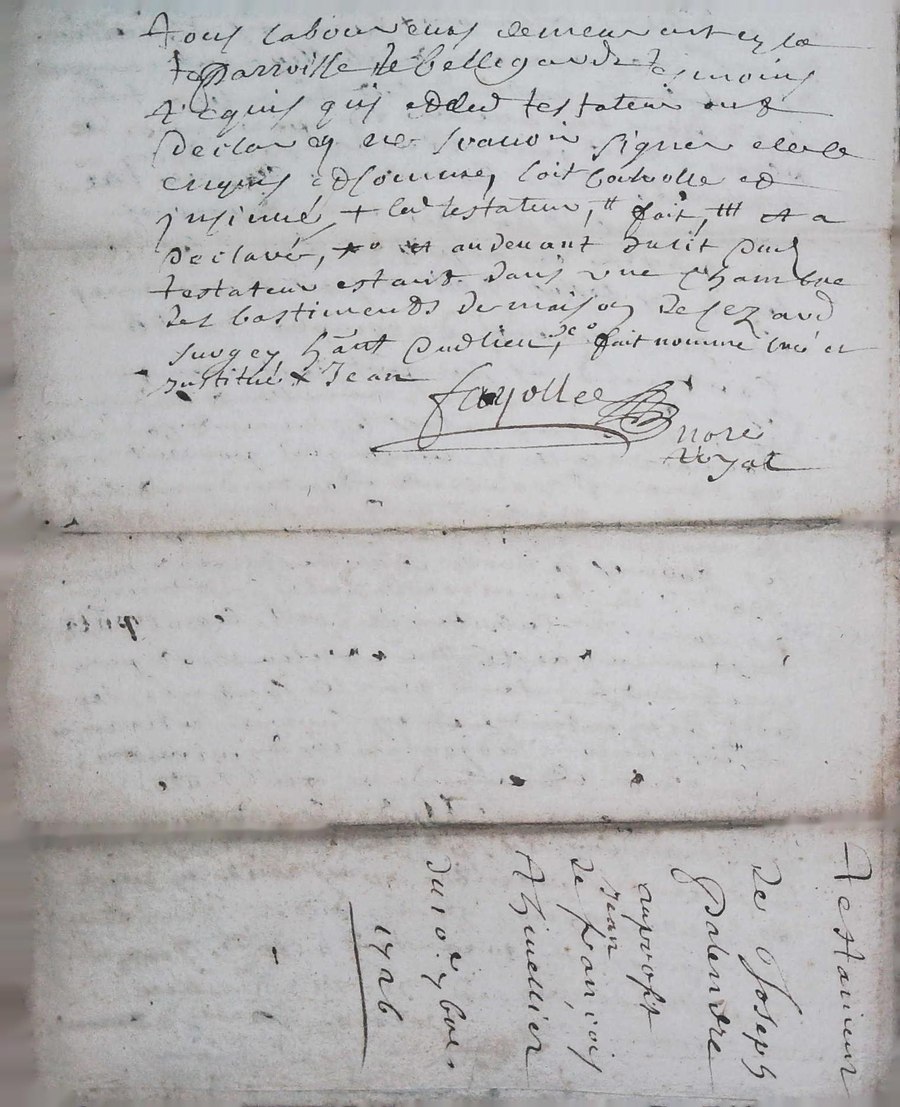 tous laboureurs demeurant en la
te parroisse de bellegarde tesmoins
requis qui et led testateur ont
declaré ne scavoir signer de ce
enquis et somme, soit controlle et
insinué, + led testateur, " fait, ''' et a
declaré, et au devant dudit dud
testateur estant dans une chambre
des bastiments de maison de
surgey hant dud lieu, fait nommé créé et
institué x Jean
fayolle
nore
royal
Testament
de Joseph
Palendre
auproft
Jean
de françois
Thivellier
du 10 xbre
1726